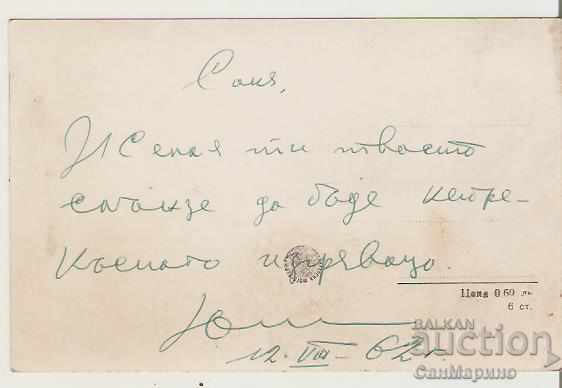 Соня,
Желая ти твоето
слънце да бъде непре-
къснато изгряващо.
12. VIII - 62 г.
Цена 0.60 лв.
6 ст.
BALKAN
auction
СанМарино